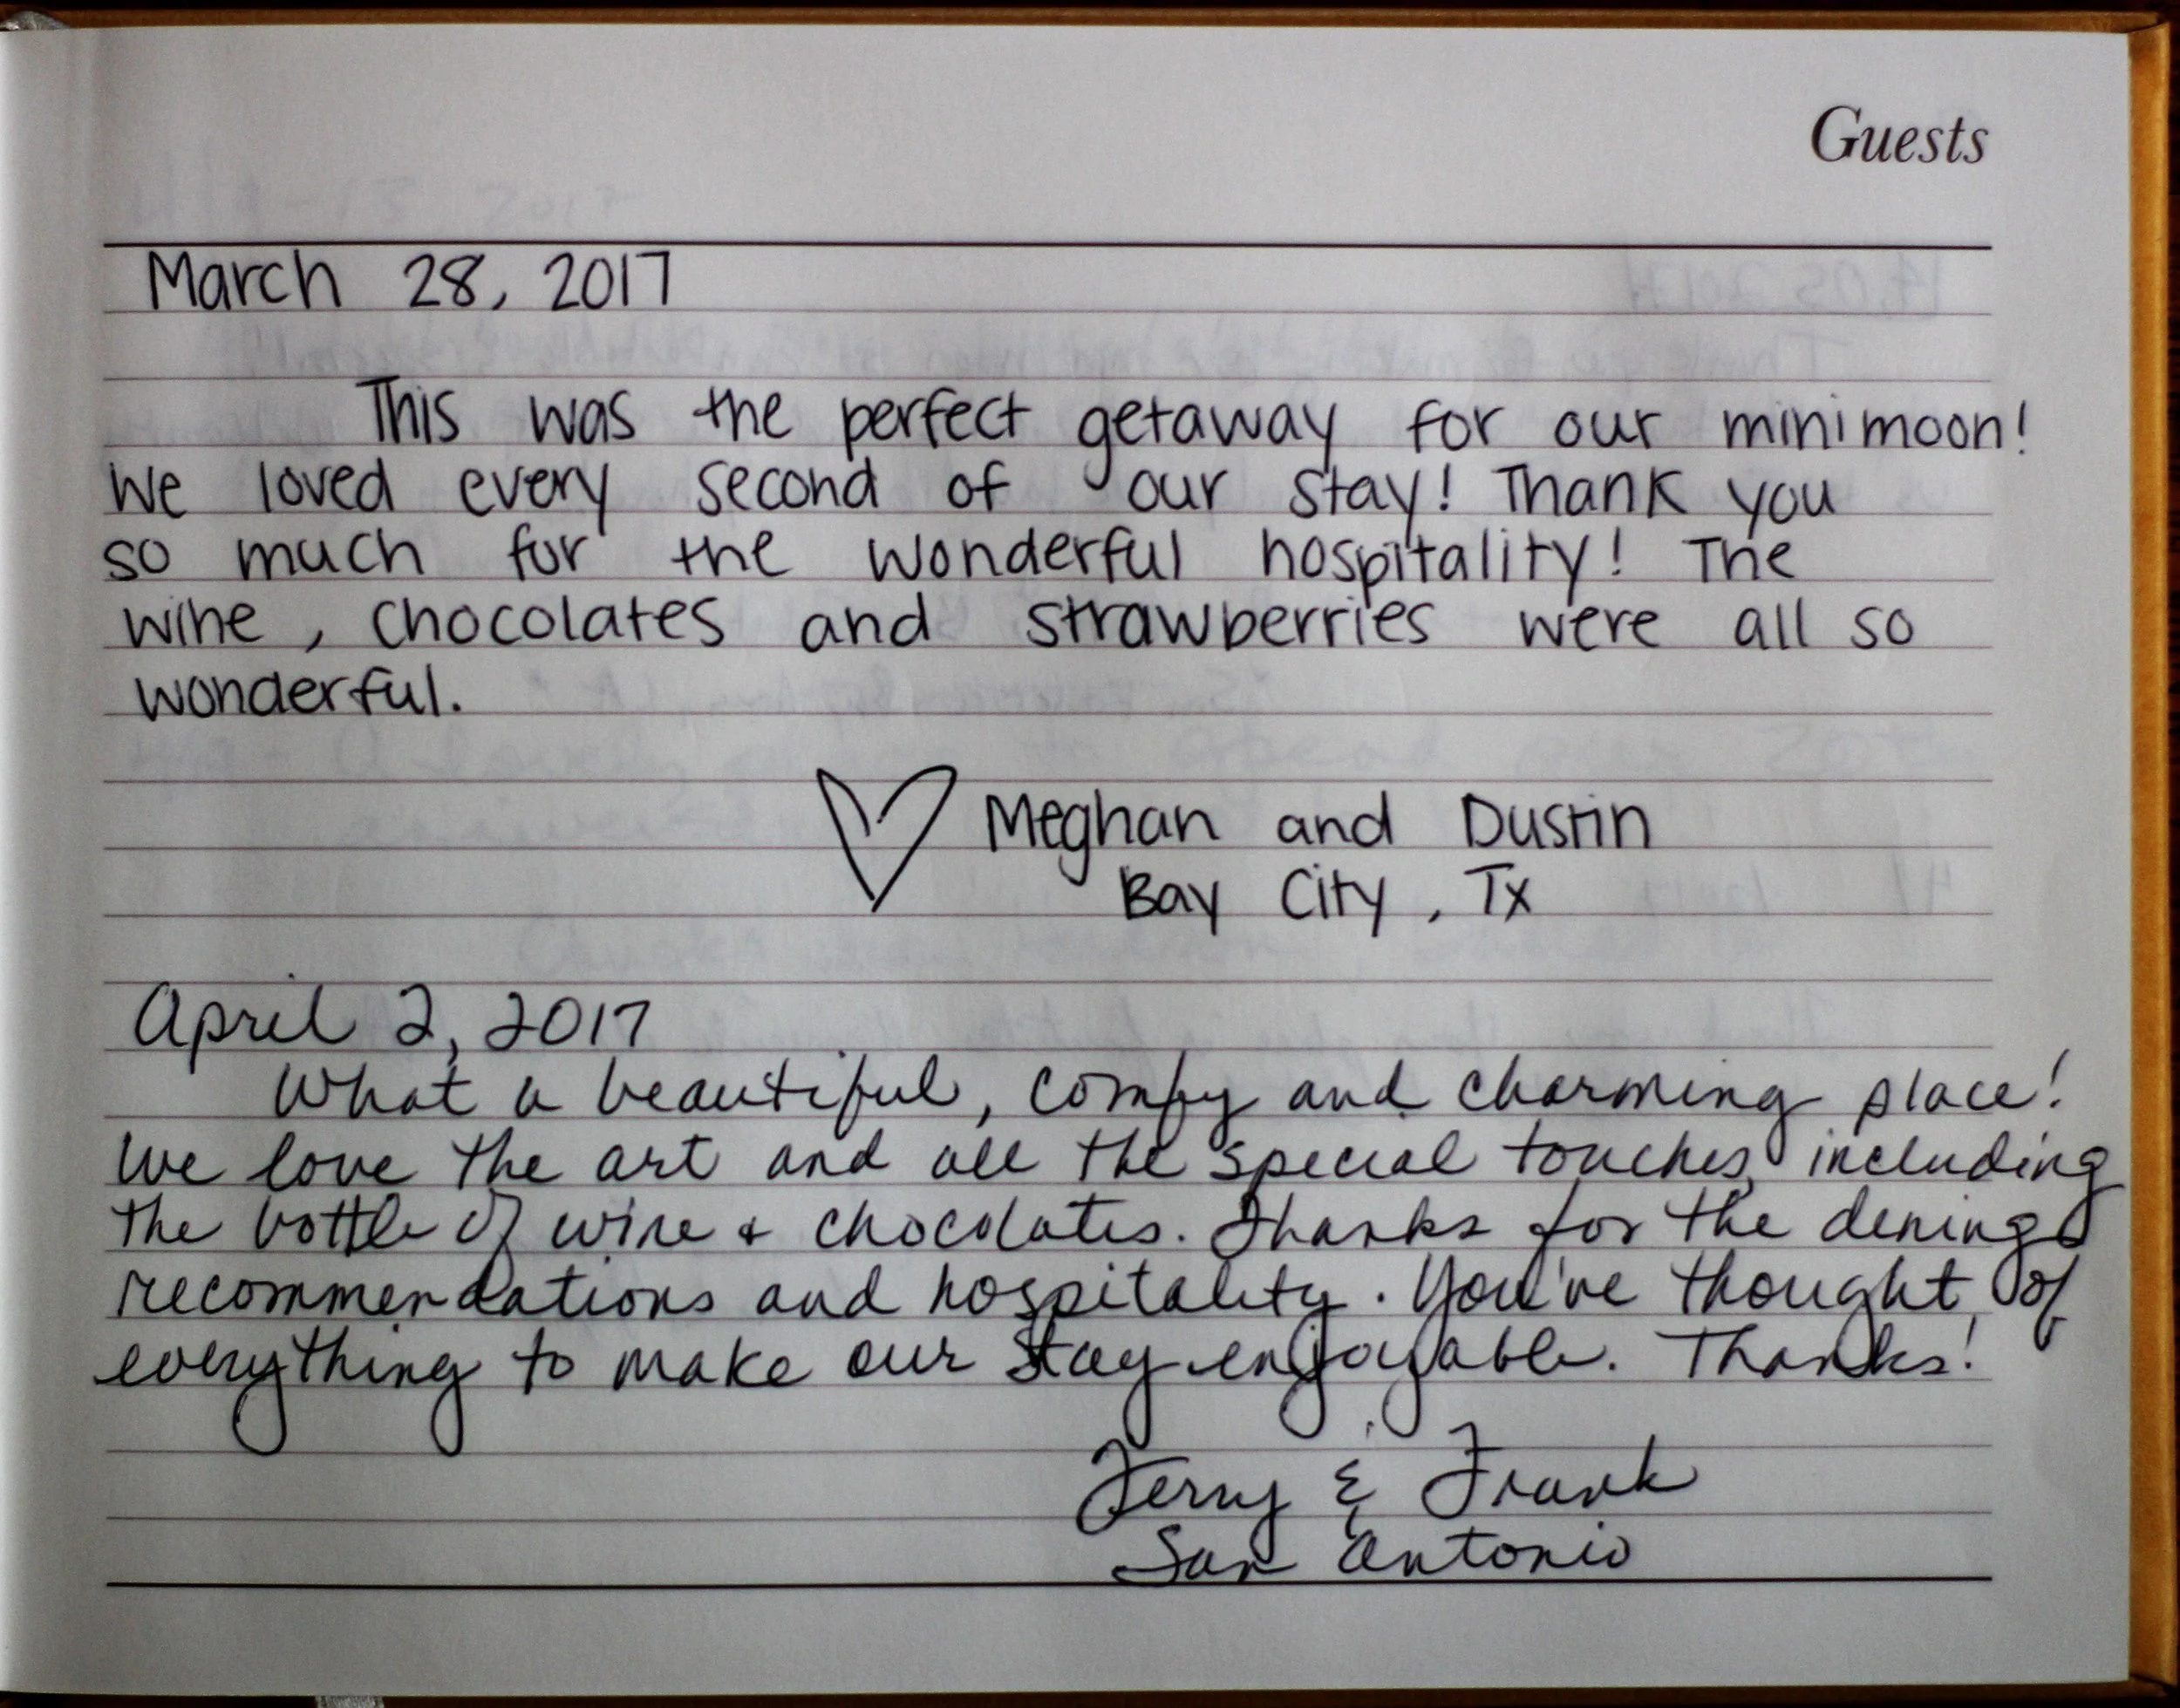 Guests
March 28, 2017
This was the perfect getaway for our minimoon!
We loved every second of our stay! Thank you
so much for the wonderful hospitality! The
wine, chocolates and strawberries were all so
wonderful.
Meghan and Dustin
Bay City, Tx
April 2, 2017
What a beautiful, comfy and charming place!
We love the art and all the special touches, including
the bottle of wine + chocolates. Thanks for the dining
recommendations and hospitality. You've thought of
everything to make our stay enjoyable. Thanks!
& Frank
San Antonio